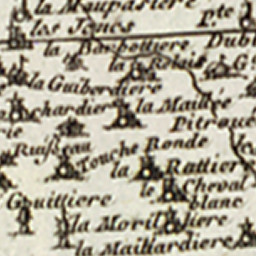 la Maupasiere
les Joncs
pte
la Barbottiere
Dubl
la
la Guiberdiere
chardier
la Maillre
Pitroue
rie
Ruisseau
Touche Ronde
la Rattier
le Cheval
blanc
Gouittiere
la Moriliere
la Maillardiere